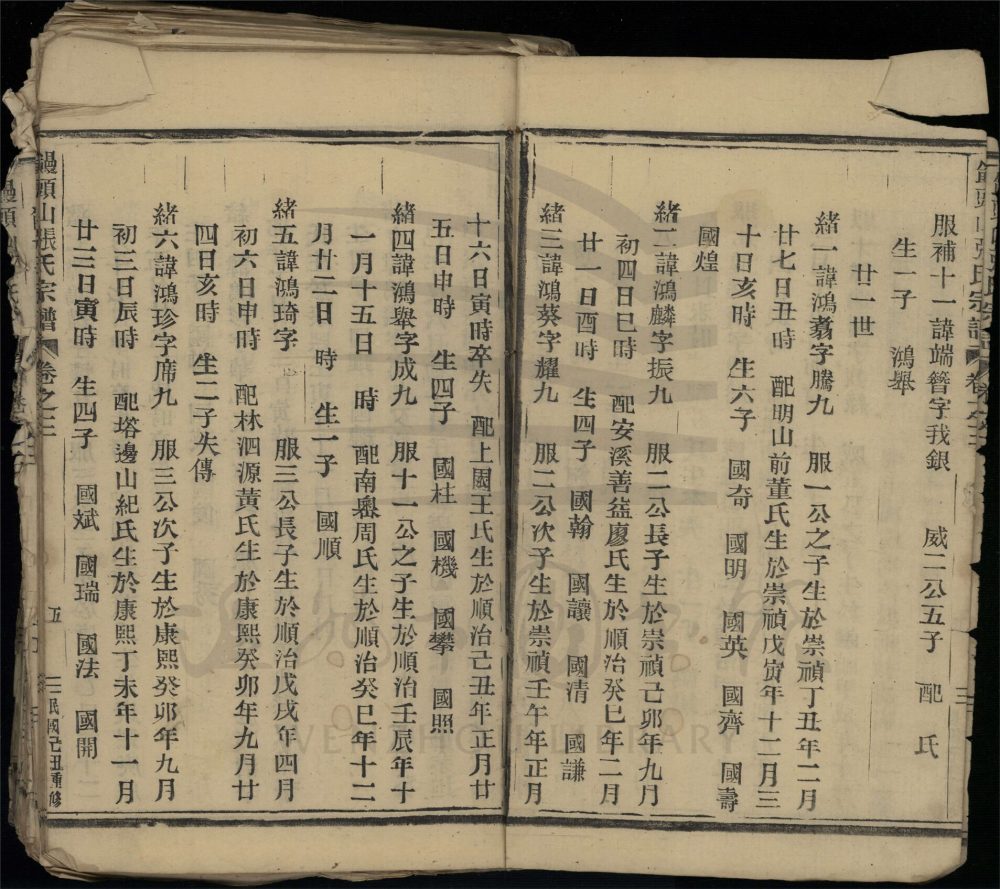 服補十一諱端簮字我銀 威二公五子 配 氏
生一子 鴻舉
廿一世
緒一諱鴻翥字騰九 服一公之子生於崇禎丁丑年二月
廿七日丑時 配明山前董氏生於崇禎戊寅年十二月三
十日亥時 生六子 國奇 國明 國英 國齊 國壽
國煌
緒二諱鴻麟字振九 服二公長子生於崇禎己卯年九月
初四日巳時 配安溪善益廖氏生於順治癸巳年二月
廿一日酉時 生四子 國翰 國讓 國清 國謙
緒三諱鴻葵字耀九 服二公次子生於崇禎壬午年正月
十六日寅時卒失 配上園王氏生於順治己丑年正月廿
五日申時 生四子 國柱 國機 國攀 國照
緒四諱鴻舉字成九 服十一公之子生於順治壬辰年十
一月十五日 時 配南周氏生於順治癸巳年十二
月廿二日 時 生一子 國順
緒五諱鴻琦字 服三公長子生於順治戊戌年四月
初六日申時 配林泗源黃氏生於康熙癸卯年九月廿
四日亥時 生二子失傳
緒六諱鴻珍字席九 服三公次子生於康熙癸卯年九月
初三日辰時 配塔邊山紀氏生於康熙丁未年十一月
廿三日寅時 生四子 國斌 國瑞 國法 國開
饅頭山張氏宗譜 卷之三 五 民國己丑重修